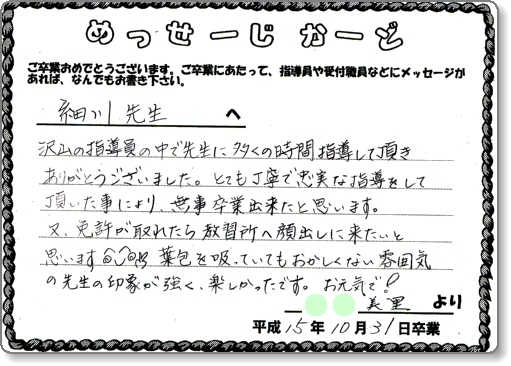 めっせーじかーど
ご卒業おめでとうございます。ご卒業にあたって、指導員や受付職員などにメッセージが
あれば、なんでもお書き下さい。
細川先生 へ
沢山の指導員の中で先生に多くの時間指導して頂き
ありがとうございました。とても丁寧で忠実な指導をして
頂いた事により、無事卒業出来たと思います。
又、免許が取れたら教習所へ顔出しに来たいと
思います 葉包を吸っていてもおかしくない雰囲気
の先生の印象が強く、楽しかったです。お元気で!
美里 より
平成15年10月31日卒業